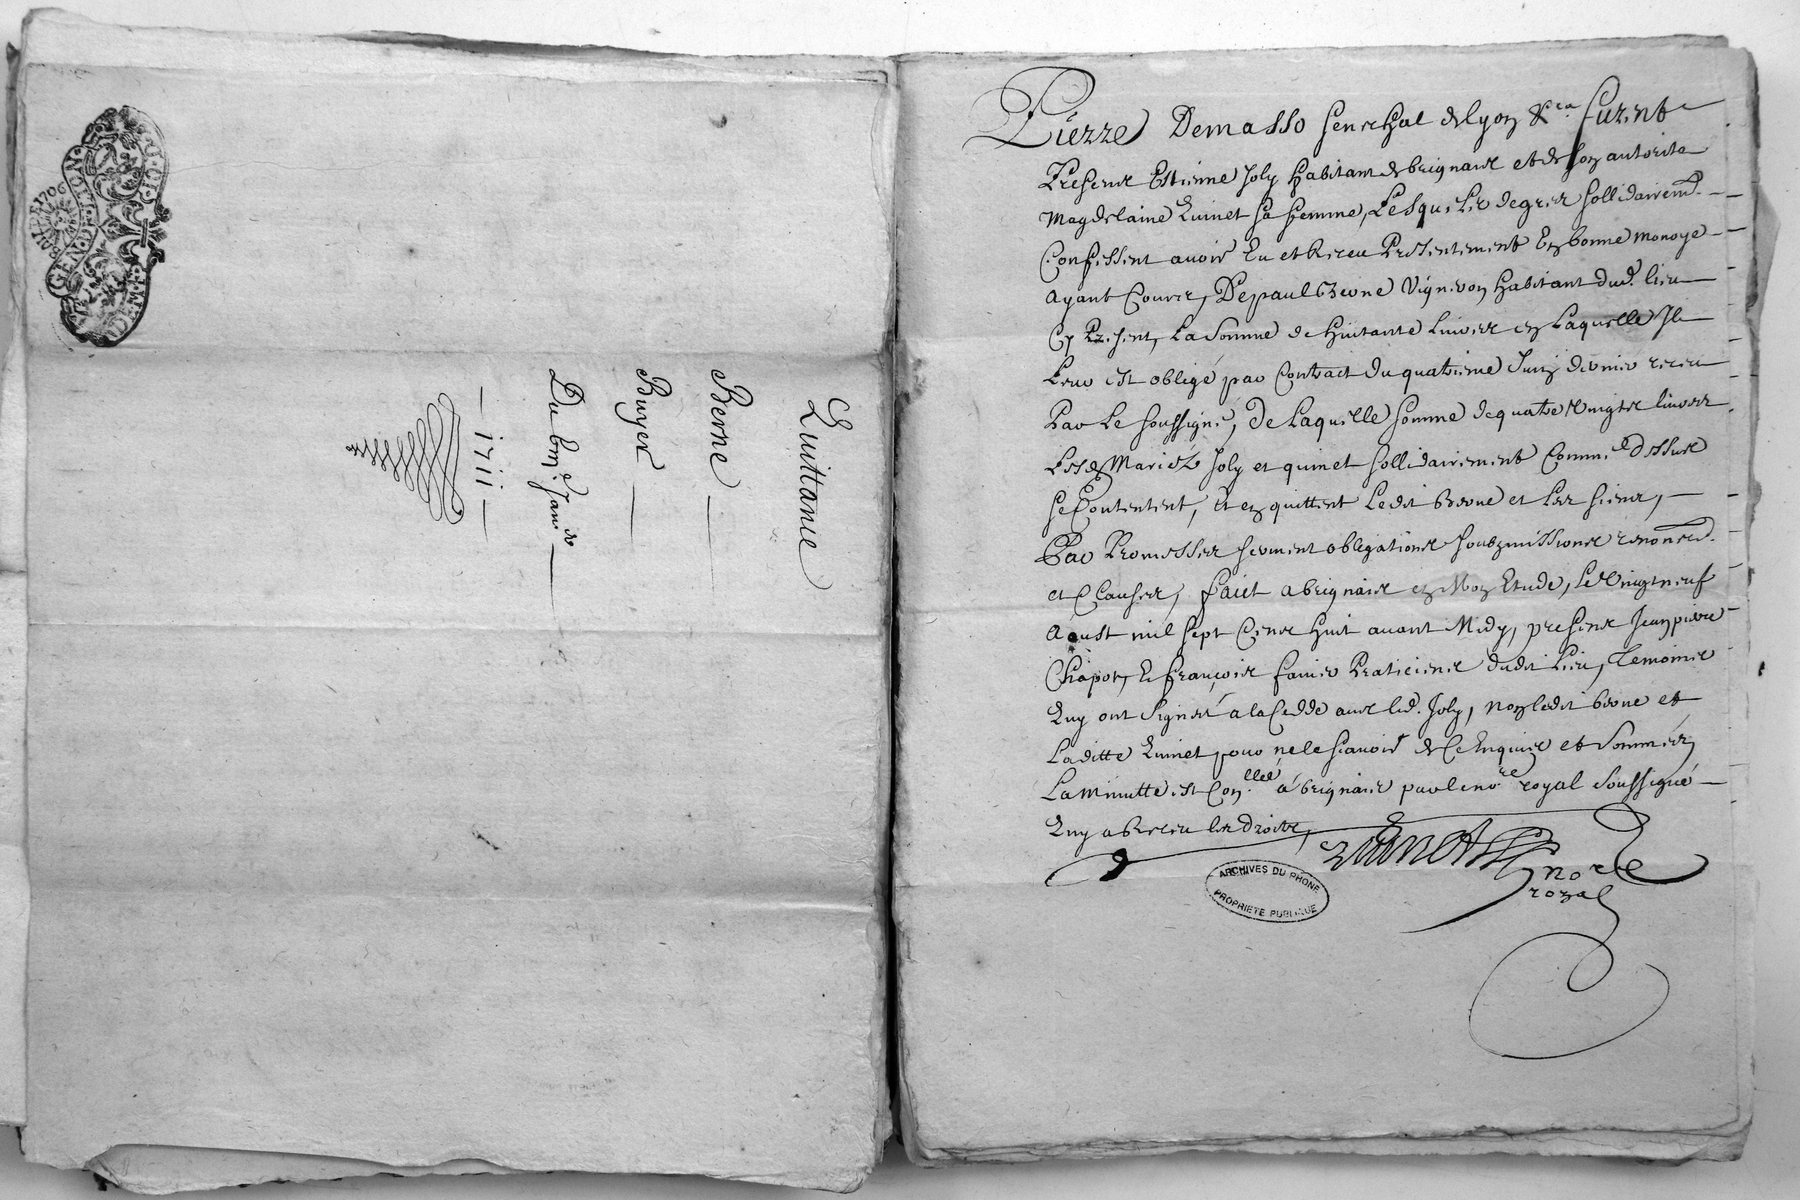 GEN DE LION
Quittance
Berne
Buyer
Du 6me Janer
1711
Pierre Demasso senechal de lyon &ca furent
Presens Estienne Joly habitant de brignais et de son autorité
Magdelaine Quinet sa femme, Lesquels de gres sollidairemt
Confessent avoir Eu et Receu Presentement En bonne monoye
ayant Cours, De paul Berne Vigneron habitant dud. lieu
Cy Present, La Somme de huitante Livres en Laquelle Il
Leur est obligé par Contract du quatrieme Juin dernier receu
Par Le soussigné, de Laquelle somme de quatre vingts livres
Lesd Mariez Joly et quinet sollidairement Comme dessus
se Contentent, Et en quittent Ledit Berne et Les siens,
Par Promesses serment obligations soubzmissions renoncns
et Clauses, faict a brignais en Mon Etude, Le Vingt neuf
Aoust mil sept Cens huit avant Midy, presens Jean pierre
Chapot, & françois Praticiens dudit Lieu, Temoins
Quy ont Signés a la Cedde avec led. Joly, non ledit berne et
Laditte Quinet pour ne le sçavoir de Ce Enquis et Sommés,
La Minutte est Conllée á brignais par le nore royal Soussigné
Quy a Receu les droits,
nore
royal
ARCHIVES DU RHONE
PROPRIETE PUBLIQUE